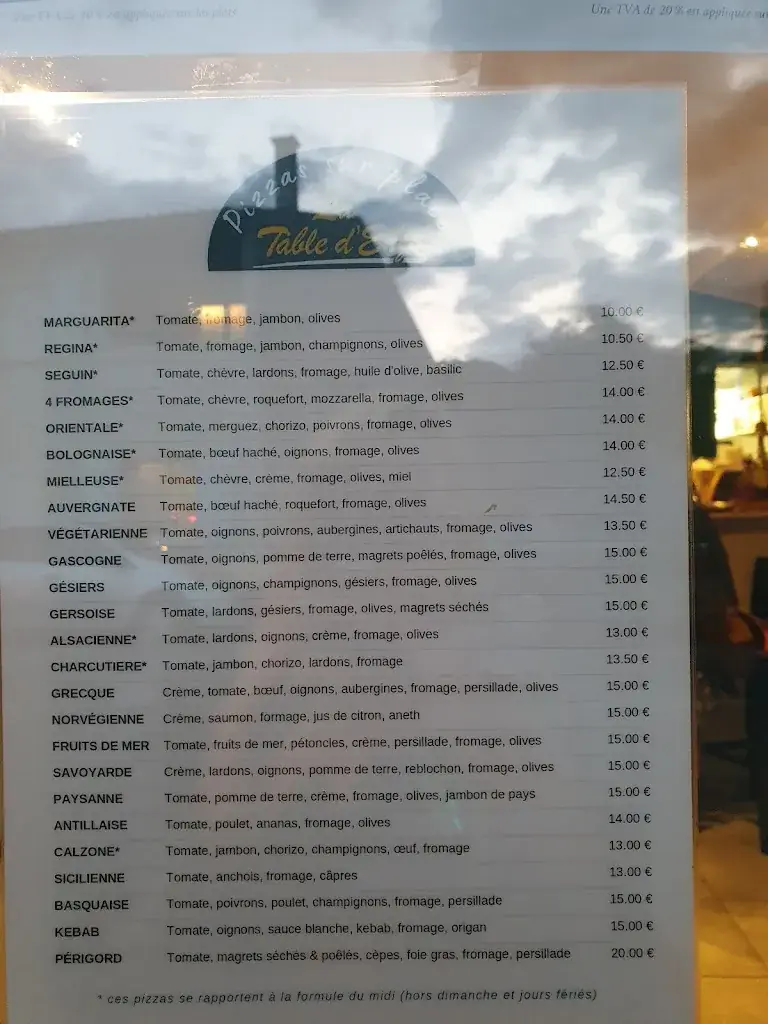 Une TVA de 20 % en appliquée sur
Pizzas sur pla
Table d'E
MARGUARITA* Tomate, fromage, jambon, olives 10.00 €
REGINA* Tomate, fromage, jambon, champignons, olives 10.50 €
SEGUIN* Tomate, chèvre, lardons, fromage, huile d'olive, basilic 12.50 €
4 FROMAGES* Tomate, chèvre, roquefort, mozzarella, fromage, olives 14.00 €
ORIENTALE* Tomate, merguez, chorizo, poivrons, fromage, olives 14.00 €
BOLOGNAISE* Tomate, bœuf haché, oignons, fromage, olives 14.00 €
MIELLEUSE* Tomate, chèvre, crème, fromage, olives, miel 12.50 €
AUVERGNATE Tomate, bœuf haché, roquefort, fromage, olives 14.50 €
VÉGÉTARIENNE Tomate, oignons, poivrons, aubergines, artichauts, fromage, olives 13.50 €
GASCOGNE Tomate, oignons, pomme de terre, magrets poêlés, fromage, olives 15.00 €
GÉSIERS Tomate, oignons, champignons, gésiers, fromage, olives 15.00 €
GERSOISE Tomate, lardons, gésiers, fromage, olives, magrets séchés 15.00 €
ALSACIENNE* Tomate, lardons, oignons, crème, fromage, olives 13.00 €
CHARCUTIERE* Tomate, jambon, chorizo, lardons, fromage 13.50 €
GRECQUE Crème, tomate, bœuf, oignons, aubergines, fromage, persillade, olives 15.00 €
NORVÉGIENNE Crème, saumon, formage, jus de citron, aneth 15.00 €
FRUITS DE MER Tomate, fruits de mer, pétoncles, crème, persillade, fromage, olives 15.00 €
SAVOYARDE Crème, lardons, oignons, pomme de terre, reblochon, fromage, olives 15.00 €
PAYSANNE Tomate, pomme de terre, crème, fromage, olives, jambon de pays 15.00 €
ANTILLAISE Tomate, poulet, ananas, fromage, olives 14.00 €
CALZONE* Tomate, jambon, chorizo, champignons, œuf, fromage 13.00 €
SICILIENNE Tomate, anchois, fromage, câpres 13.00 €
BASQUAISE Tomate, poivrons, poulet, champignons, fromage, persillade 15.00 €
KEBAB Tomate, oignons, sauce blanche, kebab, fromage, origan 15.00 €
PÉRIGORD Tomate, magrets séchés & poêlés, cèpes, foie gras, fromage, persillade 20.00 €
* ces pizzas se rapportent à la formule du midi (hors dimanche et jours fériés)